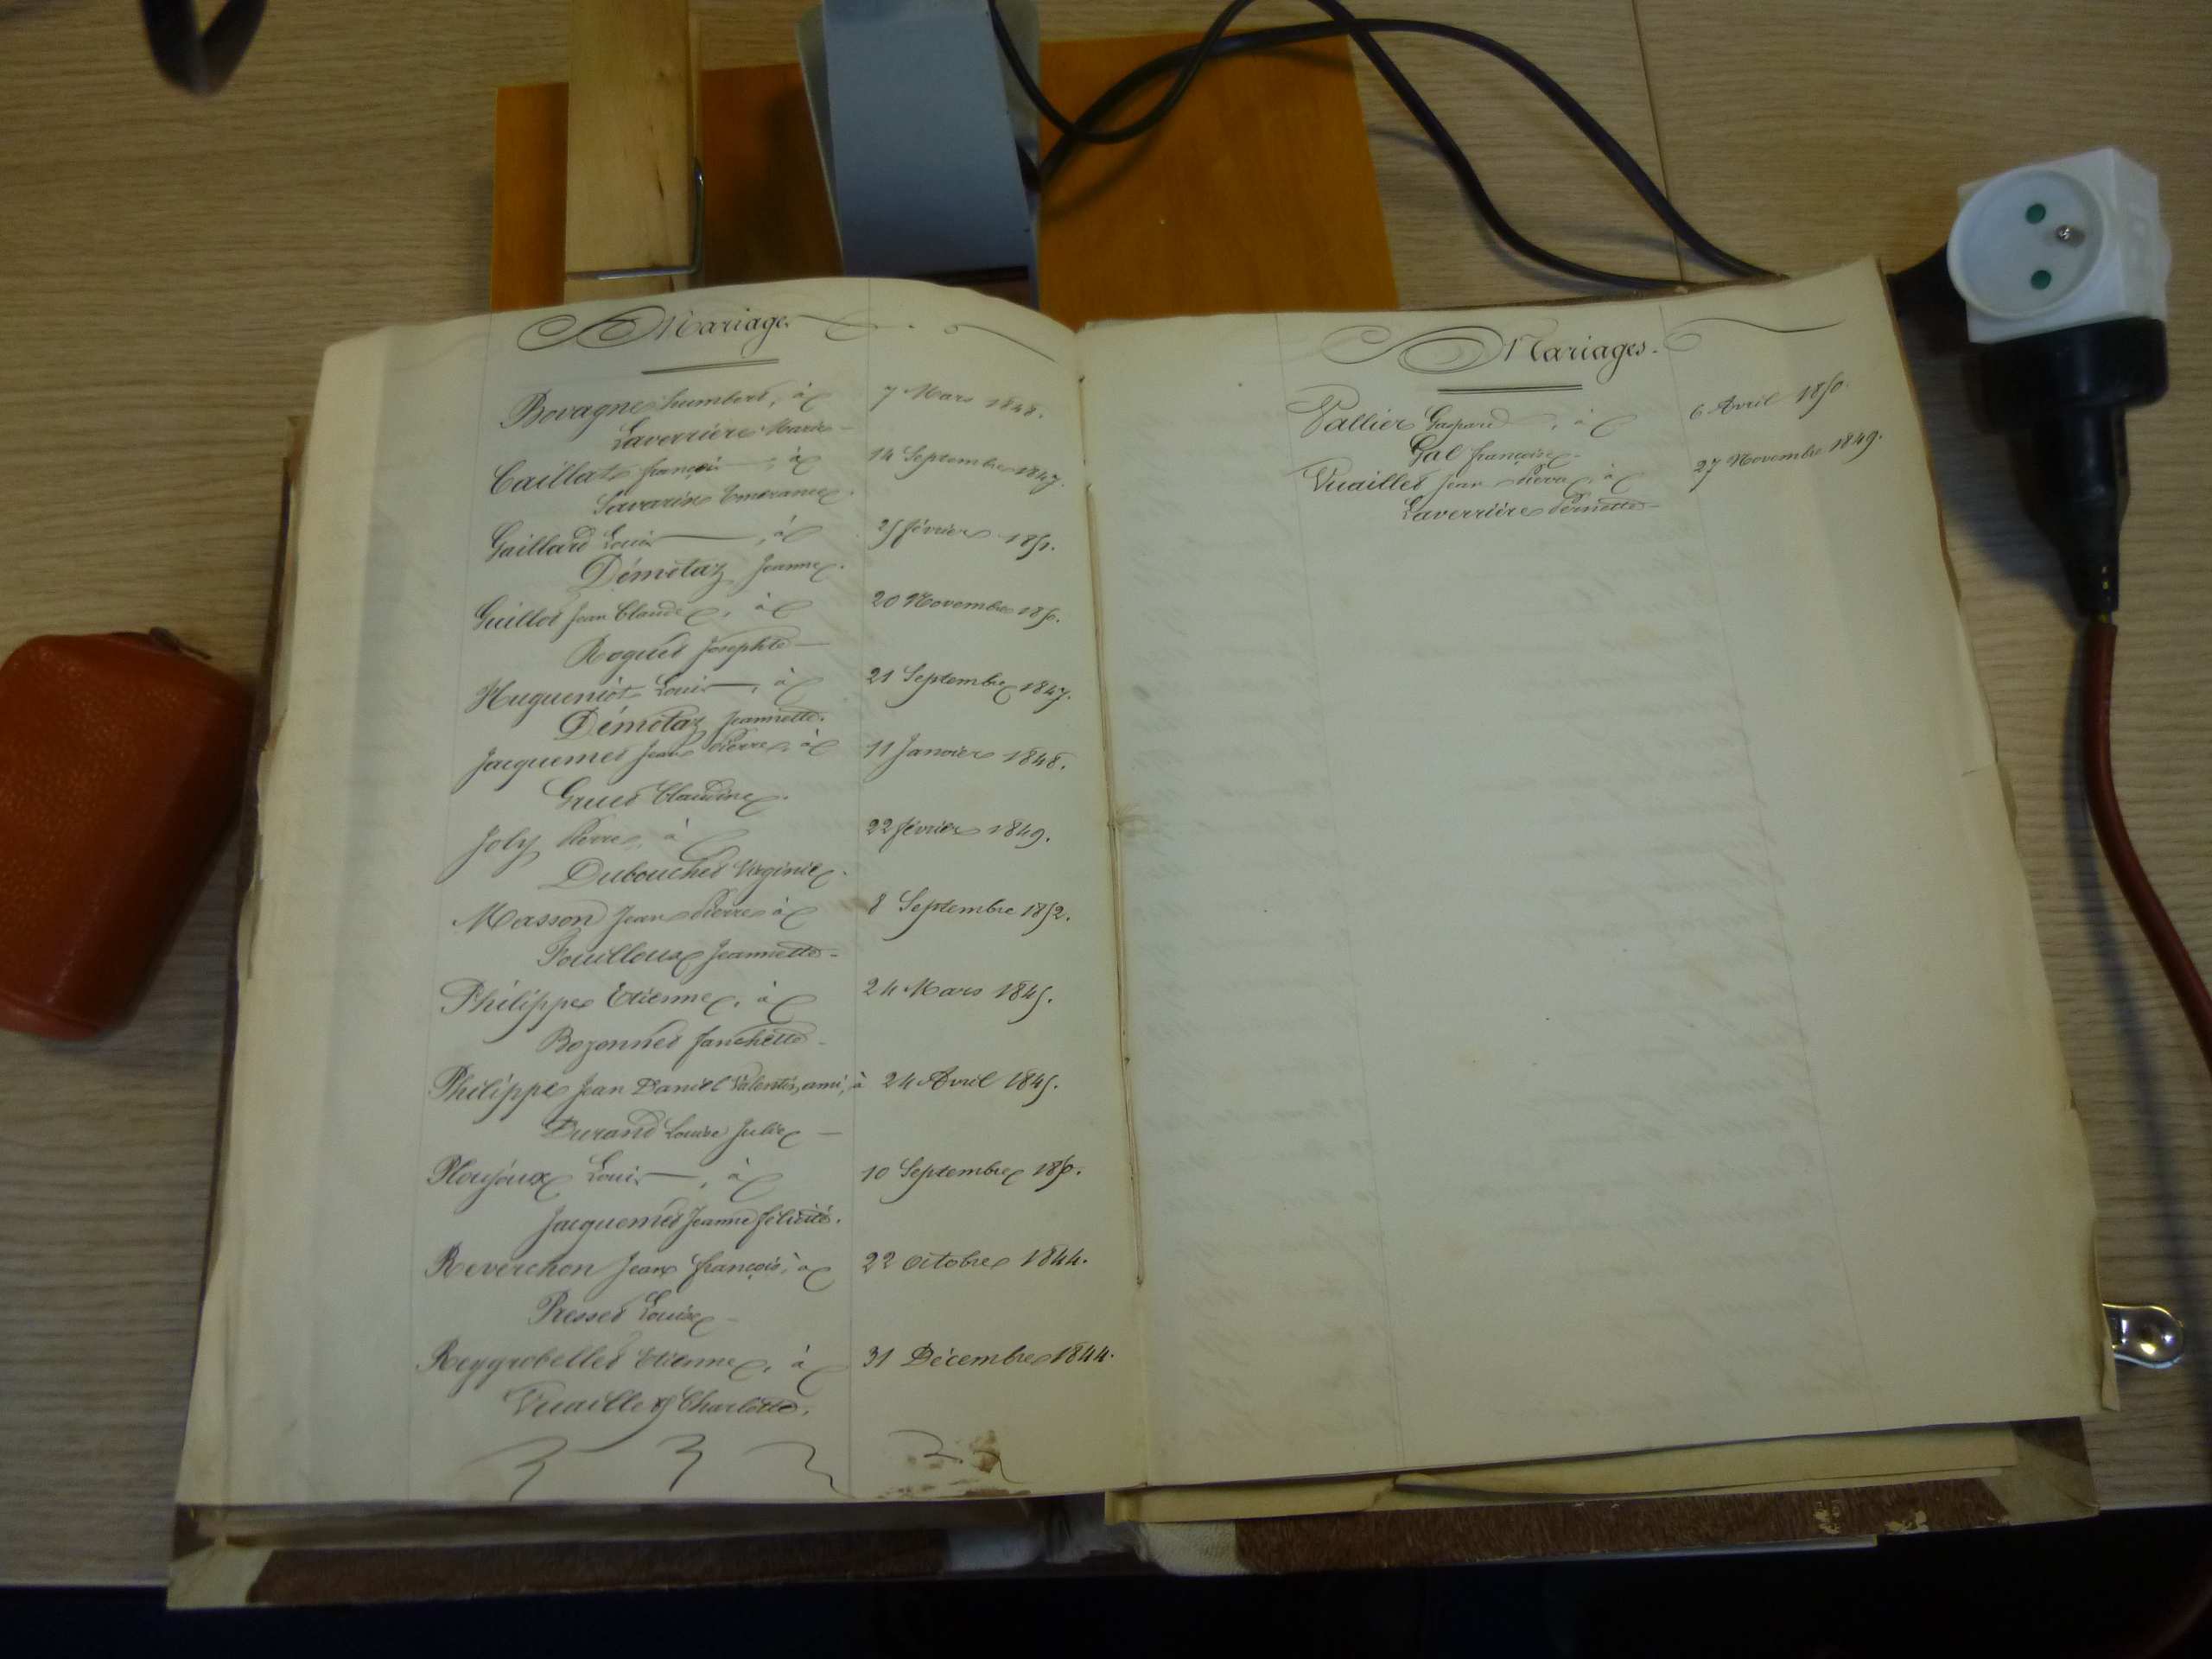 Mariages
Bovagne humbert, à 7 Mars 1848.
Laverriere Marie
Caillat françois, à 14 Septembre 1847.
Savarin Emerance.
Gaillard Louis, à 25 février 1851.
Démotaz Jeanne.
Guillot Jean Claude, à 20 Novembre 1850.
Roguet Josephte
Hugueniot Louis, à 21 Septembre 1847.
Démotaz Jeannette.
Jacquemet Jean Pierre, à 11 Janvier 1848.
Gruet Claudine.
Joly Pierre, à 22 février 1849.
Dubouchet Virginie.
Masson Jean Pierre à 8 Septembre 1852.
Fouilloux Jeannette
Philippe Etienne, à 24 Mars 1845.
Bozonnet fanchette
Philippe Jean Daniel Valentin, ami, à 24 Avril 1845.
Durand Louise Julie
Ploujoux Louis, à 10 Septembre 1850.
Jacquemet Jeanne félicité.
Reverchon Jean françois, à 22 octobre 1844.
Presset Louise
Reygrobellet Etienne, à 31 Décembre 1844.
Vuaillet Charlotte.
Mariages.
Vallier Gaspard, à 6 Avril 1850.
Gal françoise
Vuaillet Jean Pierre, à 27 Novembre 1849.
Laverrière Pernette